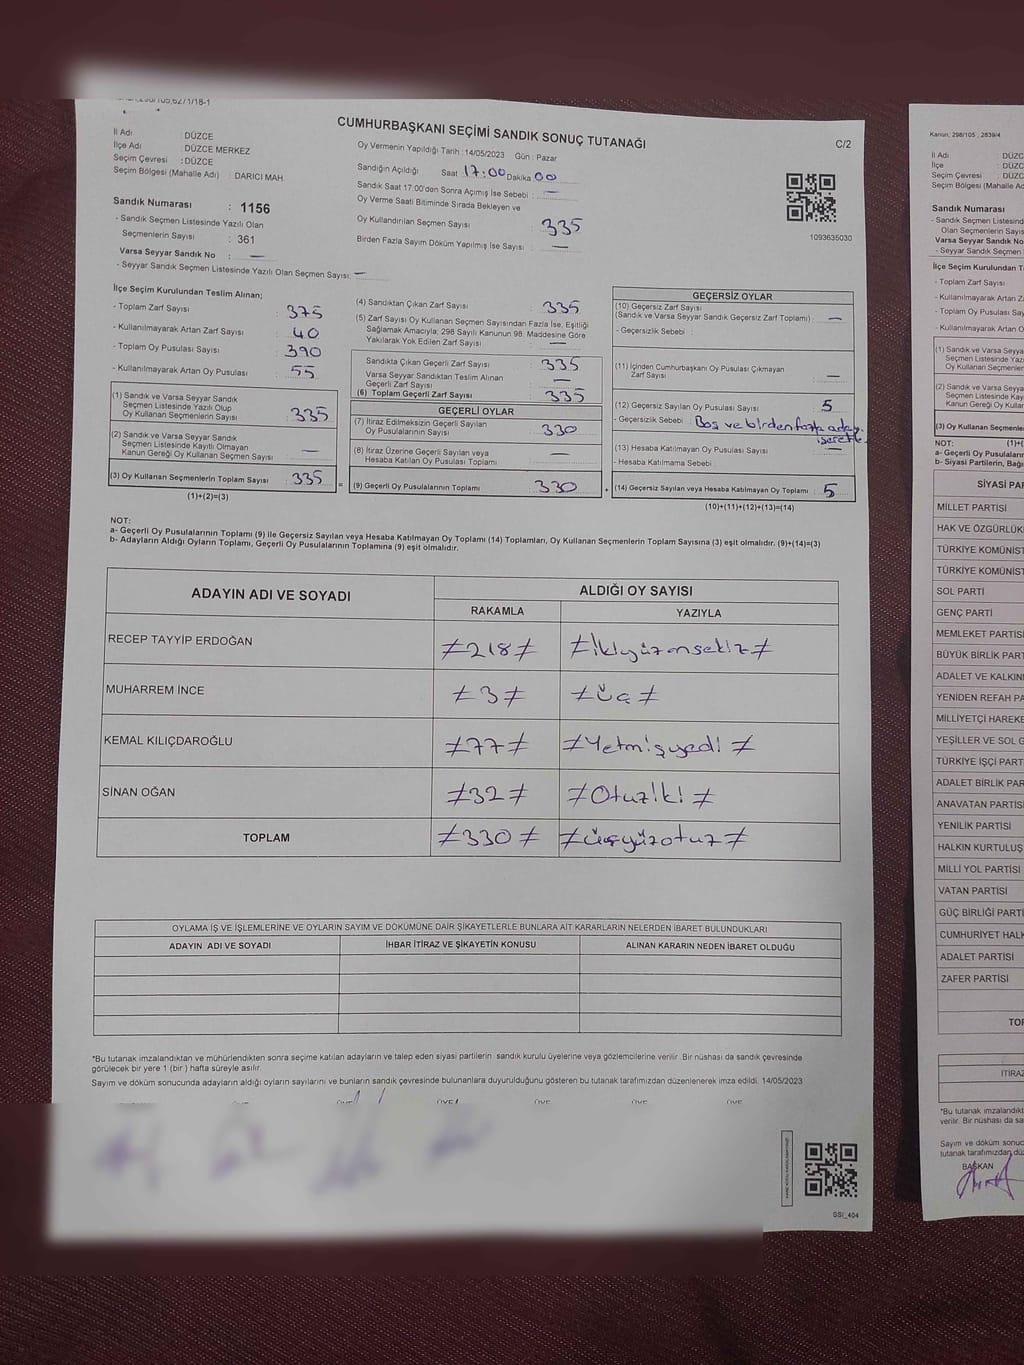 CUMHURBAŞKANI SEÇİMİ SANDIK SONUÇ TUTANAĞI
C/2
İl Adı : DÜZCE
İlçe Adı : DÜZCE MERKEZ
Seçim Çevresi : DÜZCE
Seçim Bölgesi (Mahalle Adı) : DARICI MAH.
Sandık Numarası : 1156
- Sandık Seçmen Listesinde Yazılı Olan
Seçmenlerin Sayısı : 361
Varsa Seyyar Sandık No : —
- Seyyar Sandık Seçmen Listesinde Yazılı Olan Seçmen Sayısı: —
Oy Vermenin Yapıldığı Tarih :14/05/2023 Gün : Pazar
Sandığın Açıldığı Saat 17:00 Dakika 00
Sandık Saat 17:00'den Sonra Açımış İse Sebebi : —
Oy Verme Saati Bitiminde Sırada Bekleyen ve
Oy Kullandırılan Seçmen Sayısı : 335
Birden Fazla Sayım Döküm Yapılmış İse Sayısı : —
1093635030
İlçe Seçim Kurulundan Teslim Alınan;
- Toplam Zarf Sayısı : 375
- Kullanılmayarak Artan Zarf Sayısı : 40
- Toplam Oy Pusulası Sayısı : 390
- Kullanılmayarak Artan Oy Pusulası : 55
(1) Sandık ve Varsa Seyyar Sandık
Seçmen Listesinde Yazılı Olup
Oy Kullanan Seçmenlerin Sayısı : 335
(2) Sandık ve Varsa Seyyar Sandık
Seçmen Listesinde Kayıtlı Olmayan
Kanun Gereği Oy Kullanan Seçmen Sayısı : —
(3) Oy Kullanan Seçmenlerin Toplam Sayısı : 335
(1)+(2)=(3)
(4) Sandıktan Çıkan Zarf Sayısı : 335
(5) Zarf Sayısı Oy Kullanan Seçmen Sayısından Fazla İse, Eşitliği
Sağlamak Amacıyla; 298 Sayılı Kanunun 98. Maddesine Göre
Yakılarak Yok Edilen Zarf Sayısı : —
Sandıkta Çıkan Geçerli Zarf Sayısı : 335
Varsa Seyyar Sandıktan Teslim Alınan
Geçerli Zarf Sayısı : —
(6) Toplam Geçerli Zarf Sayısı : 335
GEÇERLİ OYLAR
(7) İtiraz Edilmeksizin Geçerli Sayılan
Oy Pusulalarının Sayısı : 330
(8) İtiraz Üzerine Geçerli Sayılan veya
Hesaba Katılan Oy Pusulası Toplamı : —
(9) Geçerli Oy Pusulalarının Toplamı : 330
GEÇERSİZ OYLAR
(10) Geçersiz Zarf Sayısı
(Sandık ve Varsa Seyyar Sandık Geçersiz Zarf Toplamı) : —
- Geçersizlik Sebebi :
(11) İçinden Cumhurbaşkanı Oy Pusulası Çıkmayan
Zarf Sayısı : —
(12) Geçersiz Sayılan Oy Pusulası Sayısı : 5
- Geçersizlik Sebebi : Boş ve birden fazla aday.
işaretli
(13) Hesaba Katılmayan Oy Pusulası Sayısı : —
- Hesaba Katılmama Sebebi :
(14) Geçersiz Sayılan veya Hesaba Katılmayan Oy Toplamı : 5
(10)+(11)+(12)+(13)=(14)
NOT:
a- Geçerli Oy Pusulalarının Toplamı (9) ile Geçersiz Sayılan veya Hesaba Katılmayan Oy Toplamı (14) Toplamları, Oy Kullanan Seçmenlerin Toplam Sayısına (3) eşit olmalıdır. (9)+(14)=(3)
b- Adayların Aldığı Oyların Toplamı, Geçerli Oy Pusulalarının Toplamına (9) eşit olmalıdır.
ADAYIN ADI VE SOYADI ALDIĞI OY SAYISI
RAKAMLA YAZIYLA
RECEP TAYYİP ERDOĞAN ≠218≠ ≠İkiyüzonsekiz≠
MUHARREM İNCE ≠3≠ ≠Üç≠
KEMAL KILIÇDAROĞLU ≠77≠ ≠Yetmişyedi≠
SİNAN OĞAN ≠32≠ ≠Otuziki≠
TOPLAM ≠330≠ ≠üçyüzotuz≠
OYLAMA İŞ VE İŞLEMLERİNE VE OYLARIN SAYIM VE DÖKÜMÜNE DAİR ŞİKAYETLERLE BUNLARA AİT KARARLARIN NELERDEN İBARET BULUNDUKLARI
ADAYIN ADI VE SOYADI İHBAR İTİRAZ VE ŞİKAYETİN KONUSU ALINAN KARARIN NEDEN İBARET OLDUĞU
*Bu tutanak imzalandıktan ve mühürlendikten sonra seçime katılan adayların ve talep eden siyasi partilerin sandık kurulu üyelerine veya gözlemcilerine verilir. Bir nüshası da sandık çevresinde
görülecek bir yere 1 (bir ) hafta süreyle asılır.
Sayım ve döküm sonucunda adayların aldığı oyların sayılarını ve bunların sandık çevresinde bulunanlara duyurulduğunu gösteren bu tutanak tarafımızdan düzenlenerek imza edildi. 14/05/2023
GSI_404
Kanun; 298/105 , 2839/4
İl Adı : DÜZC
İlçe : DÜZC
Seçim Çevresi : DÜZC
Seçim Bölgesi (Mahalle Adı)
Sandık Numarası
- Sandık Seçmen Listesind
Olan Seçmenlerin Sayıs
Varsa Seyyar Sandık No
- Seyyar Sandık Seçmen
İlçe Seçim Kurulundan T
- Toplam Zarf Sayısı
- Kullanılmayarak Artan
- Toplam Oy Pusulası
- Kullanılmayarak Artan
(1) Sandık ve Varsa Seyya
Seçmen Listesinde Yazı
Oy Kullanan Seçmenler
(2) Sandık ve Varsa Seyya
Seçmen Listesinde Kay
Kanun Gereği Oy Kullan
(3) Oy Kullanan Seçmenler
NOT: (1)+(
a- Geçerli Oy Pusulaların
b- Siyasi Partilerin, Bağı
SİYASİ PAR
MİLLET PARTİSİ
HAK VE ÖZGÜRLÜK
TÜRKİYE KOMÜNİST
TÜRKİYE KOMÜNİST
SOL PARTİ
GENÇ PARTİ
MEMLEKET PARTİSİ
BÜYÜK BİRLİK PART
ADALET VE KALKINI
YENİDEN REFAH PA
MİLLİYETÇİ HAREKE
YEŞİLLER VE SOL G
TÜRKİYE İŞÇİ PARTİ
ADALET BİRLİK PAR
ANAVATAN PARTİSİ
YENİLİK PARTİSİ
HALKIN KURTULUŞ
MİLLİ YOL PARTİSİ
VATAN PARTİSİ
GÜÇ BİRLİĞİ PARTİ
CUMHURİYET HALK
ADALET PARTİSİ
ZAFER PARTİSİ
TOP
İTİRAZ
*Bu tutanak imzalandıkt
verilir. Bir nüshası da sa
Sayım ve döküm sonuc
tutanak tarafımızdan dü
BAŞKAN